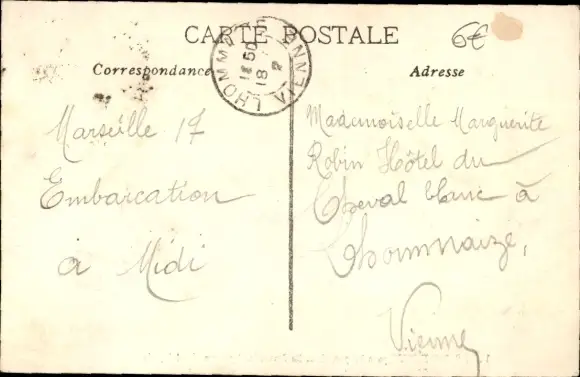 CARTE POSTALE
6€
Correspondance
Adresse
LHOMMAIZE VIENNE
18
Marseille 17
Embarcation
à Midi
Mademoiselle Marguerite
Robin Hôtel du
Cheval blanc à
Lhommaizé,
Vienne